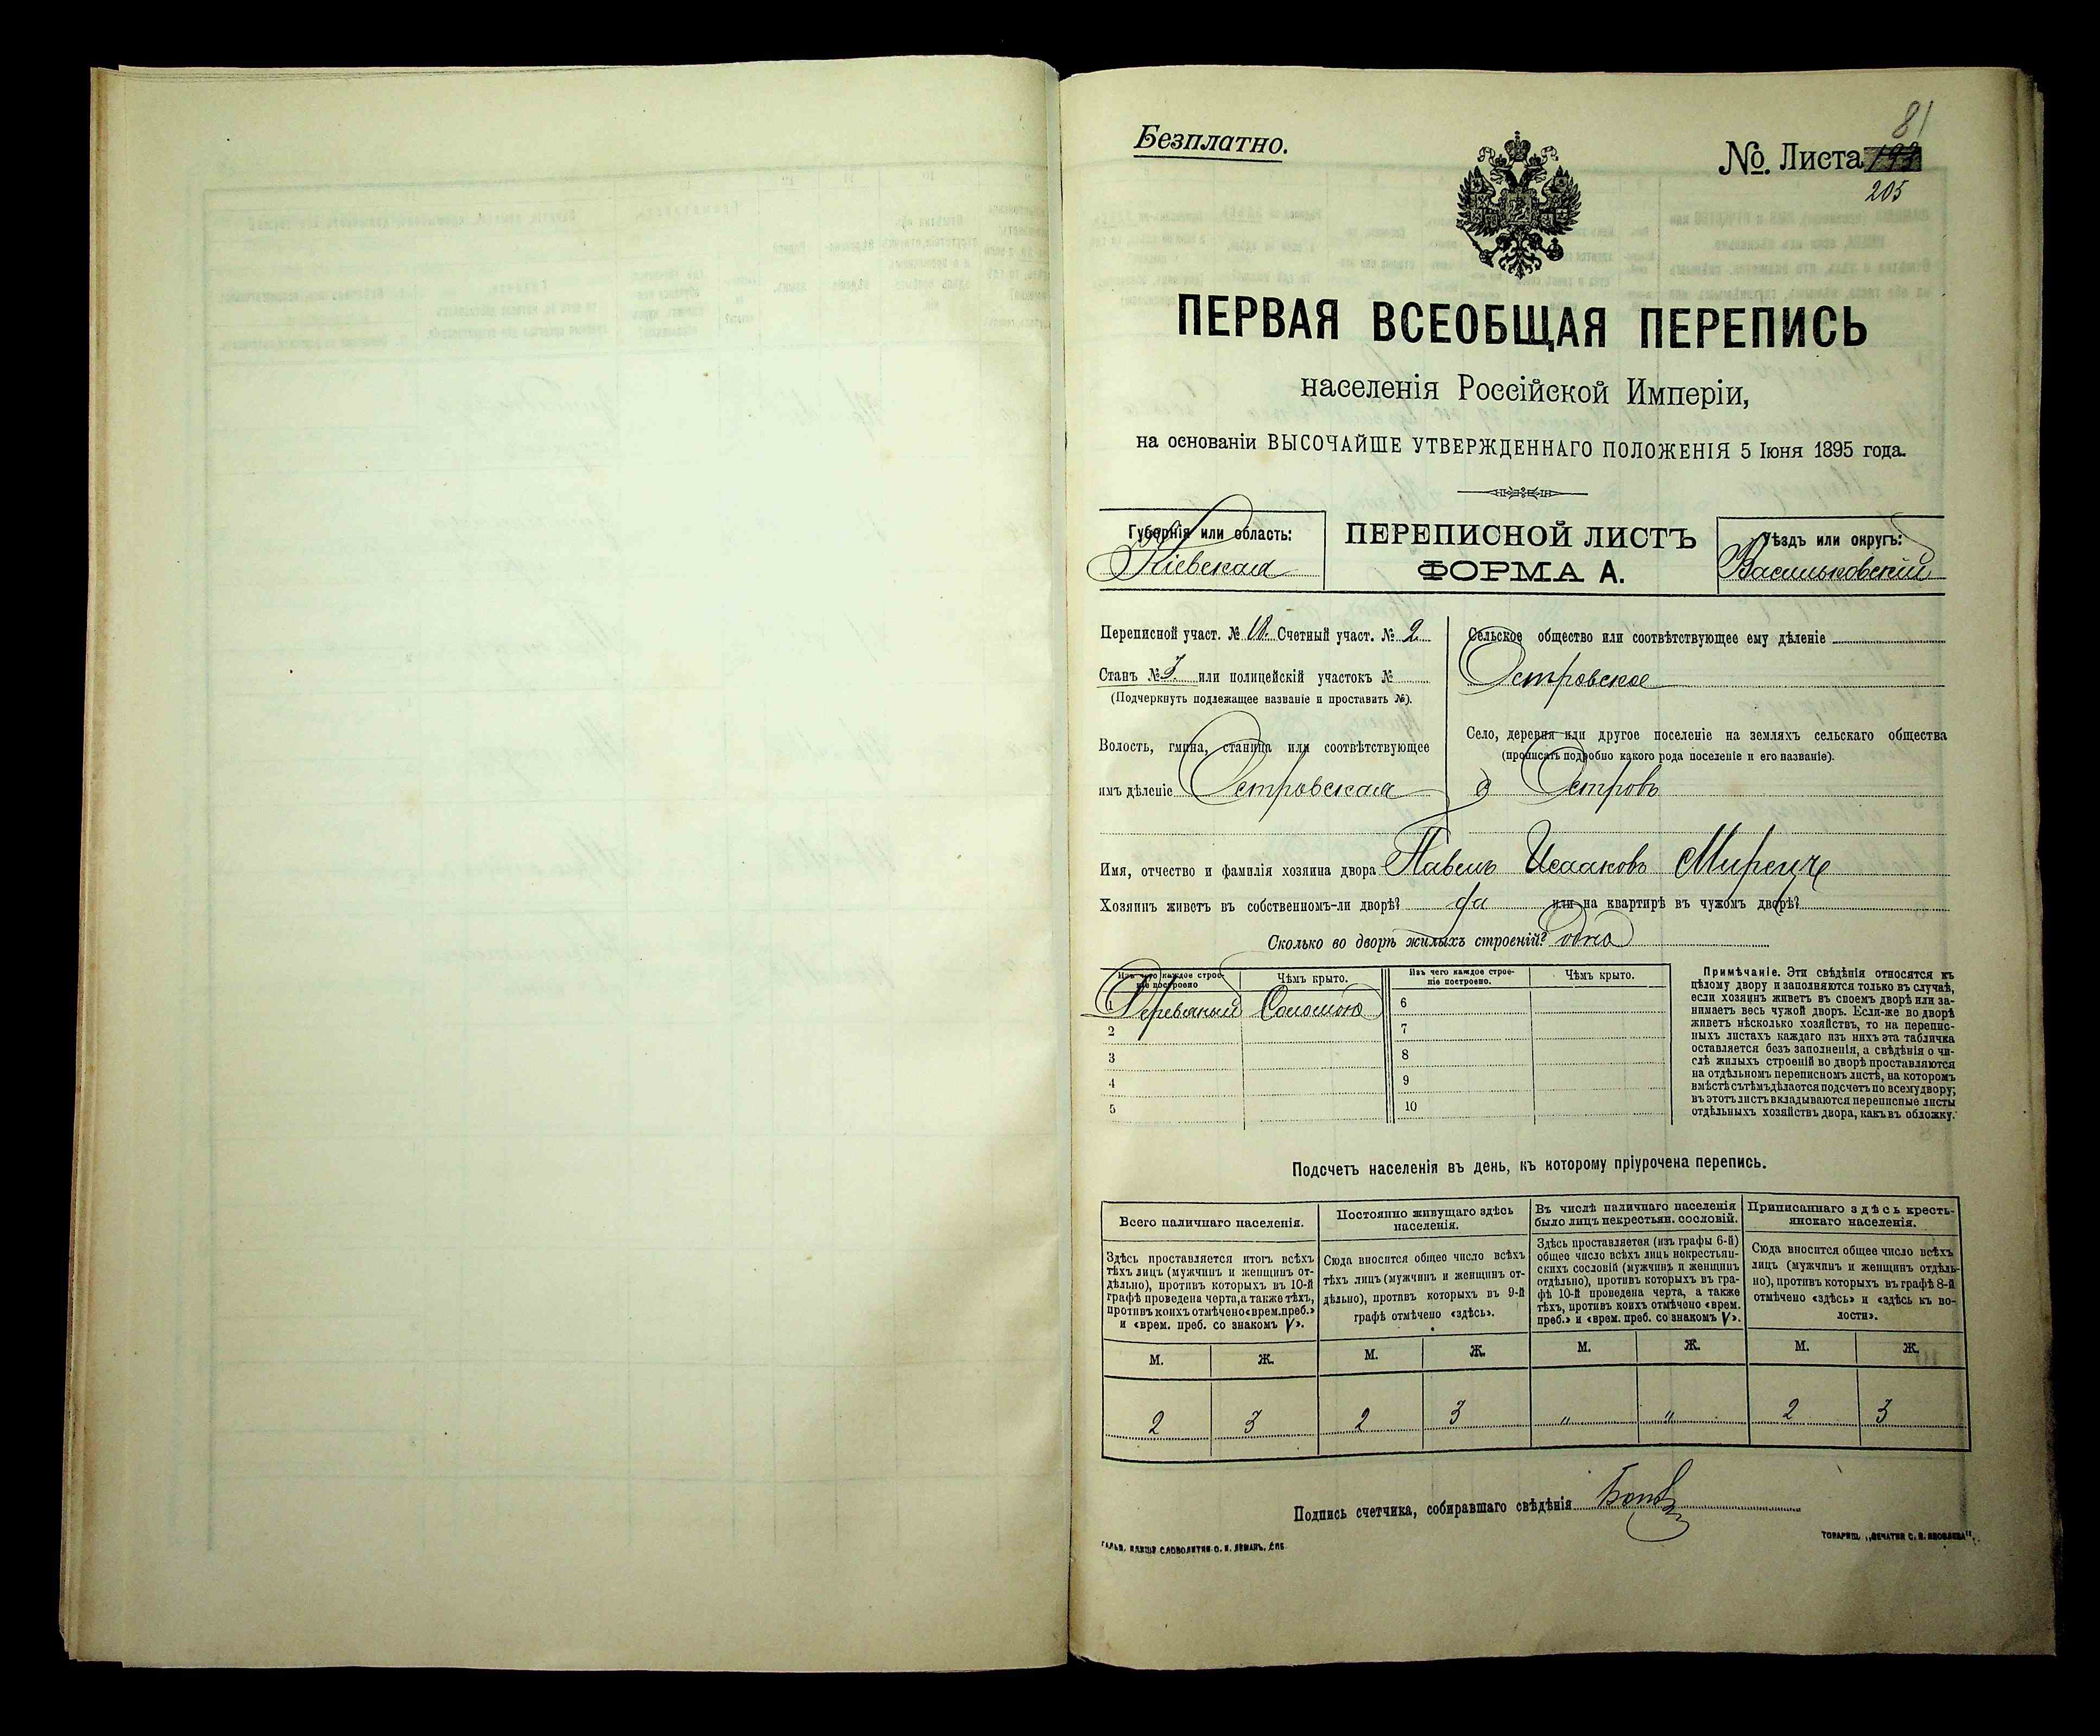 81
Безплатно.
№. Листа
205
ПЕРВАЯ ВСЕОБЩАЯ ПЕРЕПИСЬ
населенія Россійской Имперіи,
на основаніи ВЫСОЧАЙШЕ УТВЕРЖДЕННАГО ПОЛОЖЕНІЯ 5 Іюня 1895 года.
Губернія или область:
Кіевская
ПЕРЕПИСНОЙ ЛИСТЪ
ФОРМА А.
Уѣздъ или округъ:
Васильковскій
Переписной участ. № 18. Счетный участ. № 2
Станъ № 3 или полицейскій участокъ №
(Подчеркнуть подлежащее названіе и проставить №).
Волость, гмина, станица или соотвѣтствующее
имъ дѣленіе Островская
Сельское общество или соотвѣтствующее ему дѣленіе
Островское
Село, деревня или другое поселеніе на земляхъ сельскаго общества
(прописать подробно какого рода поселеніе и его названіе).
д Островъ
Имя, отчество и фамилія хозяина двора Павелъ Исааковъ
Хозяинъ живетъ въ собственномъ-ли дворѣ? да или на квартирѣ въ чужомъ дворѣ?
Сколько во дворѣ жилыхъ строеній? одно
Изъ чего каждое строе-
ніе построено
Чѣмъ крыто.
Изъ чего каждое строе-
ніе построено.
Чѣмъ крыто.
1 Деревяный Соломою 6
2 7
3 8
4 9
5 10
Примѣчаніе. Эти свѣдѣнія относятся къ
цѣлому двору и заполняются только въ случаѣ,
если хозяинъ живетъ въ своемъ дворѣ или за-
нимаетъ весь чужой дворъ. Если-же во дворѣ
живетъ нѣсколько хозяйствъ, то на перепис-
ныхъ листахъ каждаго изъ нихъ эта табличка
оставляется безъ заполненія, а свѣдѣнія о чи-
слѣ жилыхъ строеній во дворѣ проставляются
на отдѣльномъ переписномъ листѣ, на которомъ
вмѣстѣ съ тѣмъ дѣлается подсчетъ по всему двору;
въ этотъ листъ вкладываются переписные листы
отдѣльныхъ хозяйствъ двора, какъ въ обложку.
Подсчетъ населенія въ день, къ которому пріурочена перепись.
Всего наличнаго населенія.
Здѣсь проставляется итогъ всѣхъ
тѣхъ лицъ (мужчинъ и женщинъ от-
дѣльно), противъ которыхъ въ 10-й
графѣ проведена черта, а также тѣхъ,
противъ коихъ отмѣчено «врем. преб.»
и «врем. преб. со знакомъ V».
Постоянно живущаго здѣсь
населенія.
Сюда вносится общее число всѣхъ
тѣхъ лицъ (мужчинъ и женщинъ от-
дѣльно), противъ которыхъ въ 9-й
графѣ отмѣчено «здѣсь».
Въ числѣ наличнаго населенія
было лицъ некрестьян. сословій.
Здѣсь проставляется (изъ графы 6-й)
общее число всѣхъ лицъ некрестьян-
скихъ сословій (мужчинъ и женщинъ
отдѣльно), противъ которыхъ въ гра-
фѣ 10-й проведена черта, а также
тѣхъ, противъ коихъ отмѣчено «врем.
преб.» и «врем. преб. со знакомъ V».
Приписаннаго здѣсь кресть-
янскаго населенія.
Сюда вносится общее число всѣхъ
лицъ (мужчинъ и женщинъ отдѣль-
но), противъ которыхъ въ графѣ 8-й
отмѣчено «здѣсь» и «здѣсь къ во-
лости».
М. Ж. М. Ж. М. Ж. М. Ж.
2 3 2 3 " " 2 3
Подпись счетчика, собиравшаго свѣдѣнія
ТОВАРИЩ. „ПЕЧАТНЯ С. П. ЯКОВЛЕВА".